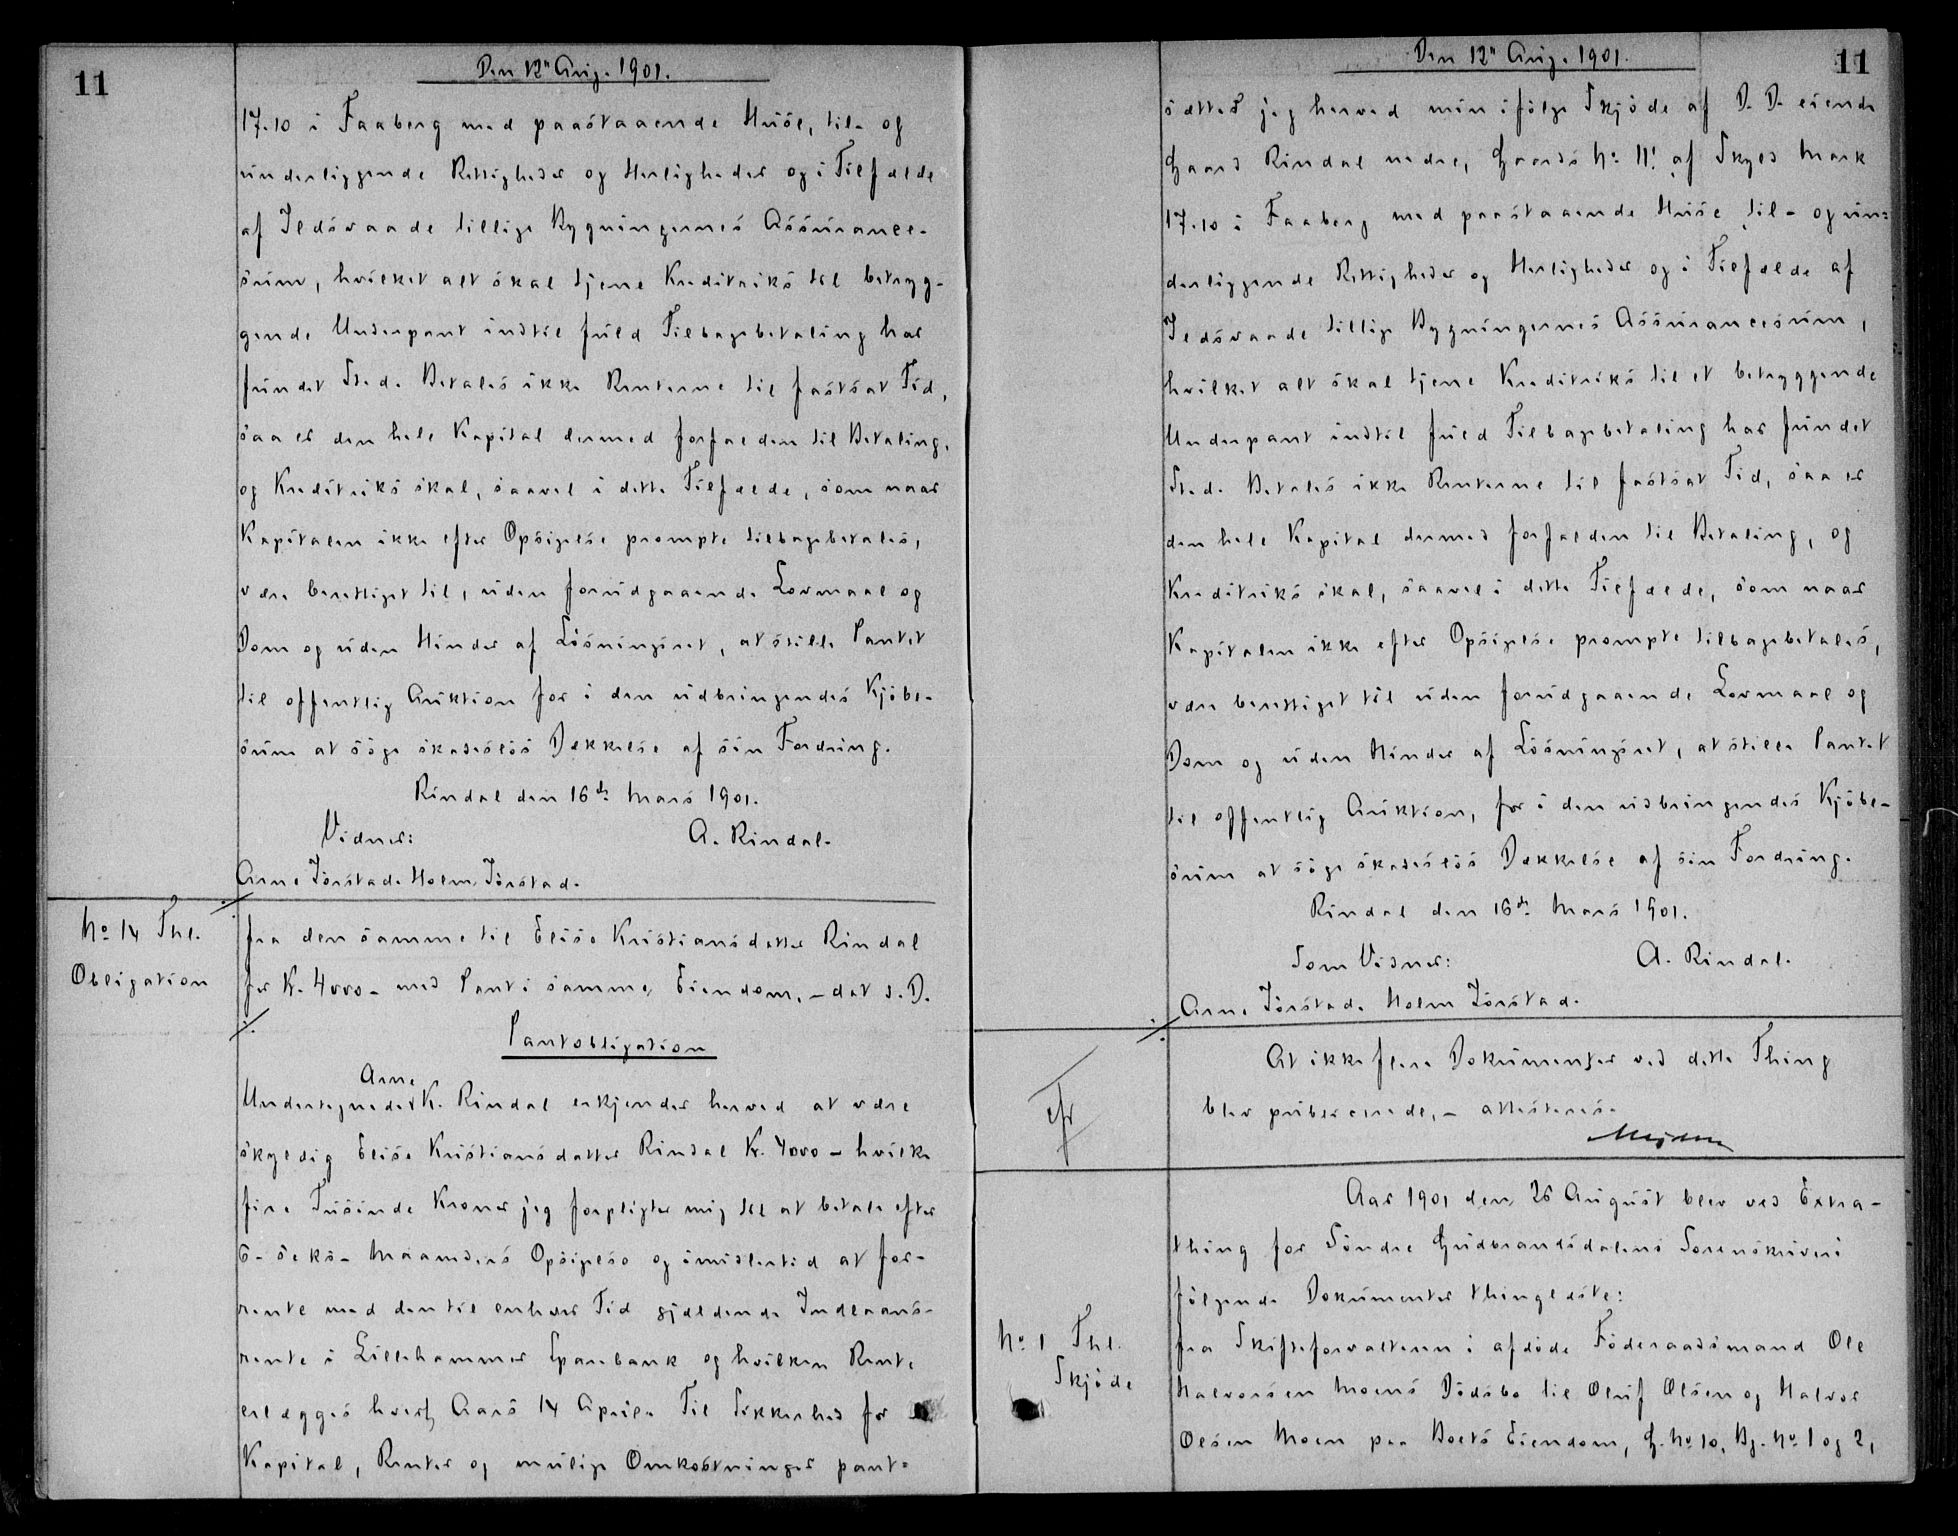 11
Den 12" Aug. 1901.
17.10 i Faaberg med paastaaende Huse, til- og
underliggende Rettigheder og Herligheder og i Tilfælde
af Ildsvaade tillige Bygningernes Assurance-
sum, hvilket alt skal tjene Kreditriks til betryg-
gende Underpant indtil fuld Tilbagebetaling har
fundet Sted. Betales ikke Renterne til fastsat Tid,
saa er den hele Kapital dermed forfalden til Betaling,
og Kreditriks skal, saavel i dette Tilfælde, som naar
Kapitalen ikke efter Opsigelse prompte tilbagebetales,
være berettiget til, uden forudgaaende Lovmaal og
Dom og uden Hinder af Løsningsret, at stille Pantet
til offentlig Auktion for i den udbringendes Kjøbe-
sum at søge skadesløs Dækkelse af sin Fordring.
Rindal den 16de Mars 1901.
Vidner: A. Rindal.
Arne Jørstad. Holm. Jørstad.
No 14 Thl.
Obligation
fra den samme til Elise Kristiansdatter Rindal
for Kr. 4000- med Pant i samme Eiendom, - dat s. D.
Pantobligation
Arne
Undertegnede K. Rindal erkjender herved at være
skyldig Elise Kristiansdatter Rindal Kr. 4000 - hvilke
fire Tusinde Kroner jeg forpligter mig til at betale efter
6- seks- Maaneders Opsigelse og imidlertid at for-
rente med den til enhver Tid gjældende Indlaans-
rente i Lillehammer Sparebank og hvilken Rente
erlægges hvert Aars 14 April. Til Sikkerhed for
Kapital, Renter og mulige Omkostninger pant-
Den 12" Aug. 1901.
11
sætter jeg herved min ifølge Skjøde af D. D. eiende
Gaard Rindal nedre, Gaards No 11! af Skyld Mark
17.10 i Faaberg med paastaaende Huse til- og un-
derliggende Rettigheder og Herligheder og i Tilfælde af
Ildsvaade tillige Bygningernes Assurancesum,
hvilket alt skal tjene Kreditriks til et betryggende
Underpant indtil fuld Tilbagebetaling har fundet
Sted. Betales ikke Renterne til fastsat Tid, saa er
den hele Kapital dermed forfalden til Betaling, og
Kreditriks skal, saavel i dette Tilfælde, som naar
Kapitalen ikke efter Opsigelse prompte tilbagebetales,
være berettiget til uden forudgaaende Lovmaal og
Dom og uden Hinder af Løsningsret, at stille Pantet
til offentlig Auktion, for i den udbringendes Kjøbe-
sum at søge skadesløs Dækkelse af sin Fordring.
Rindal den 16de Mars 1901.
Som Vidner: A. Rindal.
Arne Jørstad. Holm Jørstad.
At ikke flere Dokumenter ved dette Thing
blev publicerede, - attesteres.
Aar 1901 den 26 August blev ved Extra-
thing for Søndre Gudbrandsdalens Sorenskriveri
følgende Dokumenter thinglæste:
No 1 Thl.
Skjøde
fra Skifteforvalteren i afdøde Føderaadsmand Ole
Halvorsen Moens Dødsbo til Oluf Olsen og Halvor
Olsen Moen paa Boets Eiendom, G. No 10, Bg. No 1 og 2,